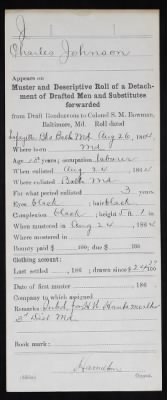 J
Charles Johnson
Appears on
Muster and Descriptive Roll of a Detachment
of Drafted Men and Substitutes
forwarded
from Draft Rendezvous to Colonel S. M. Bowman,
Baltimore, Md. Roll dated
Lafayette Bks Balto Md, Aug 26, 1864
Where born Md
Age years; occupation laborer
When enlisted Aug 24, 1864
Where enlisted Balto Md
For what period enlisted 3 years.
Eyes black; hair black
Complexion black; height 5 ft. in.
When mustered in Aug 24, 1864
Where mustered in
Bounty paid $ 100; due $ 100
Clothing account:
Last settled , 186 ; drawn since $ 100
Date of first muster , 186
Company to which assigned
Remarks: Subst for H. W.
3d Dist Md
Book mark:
Hamilton
Copyist.